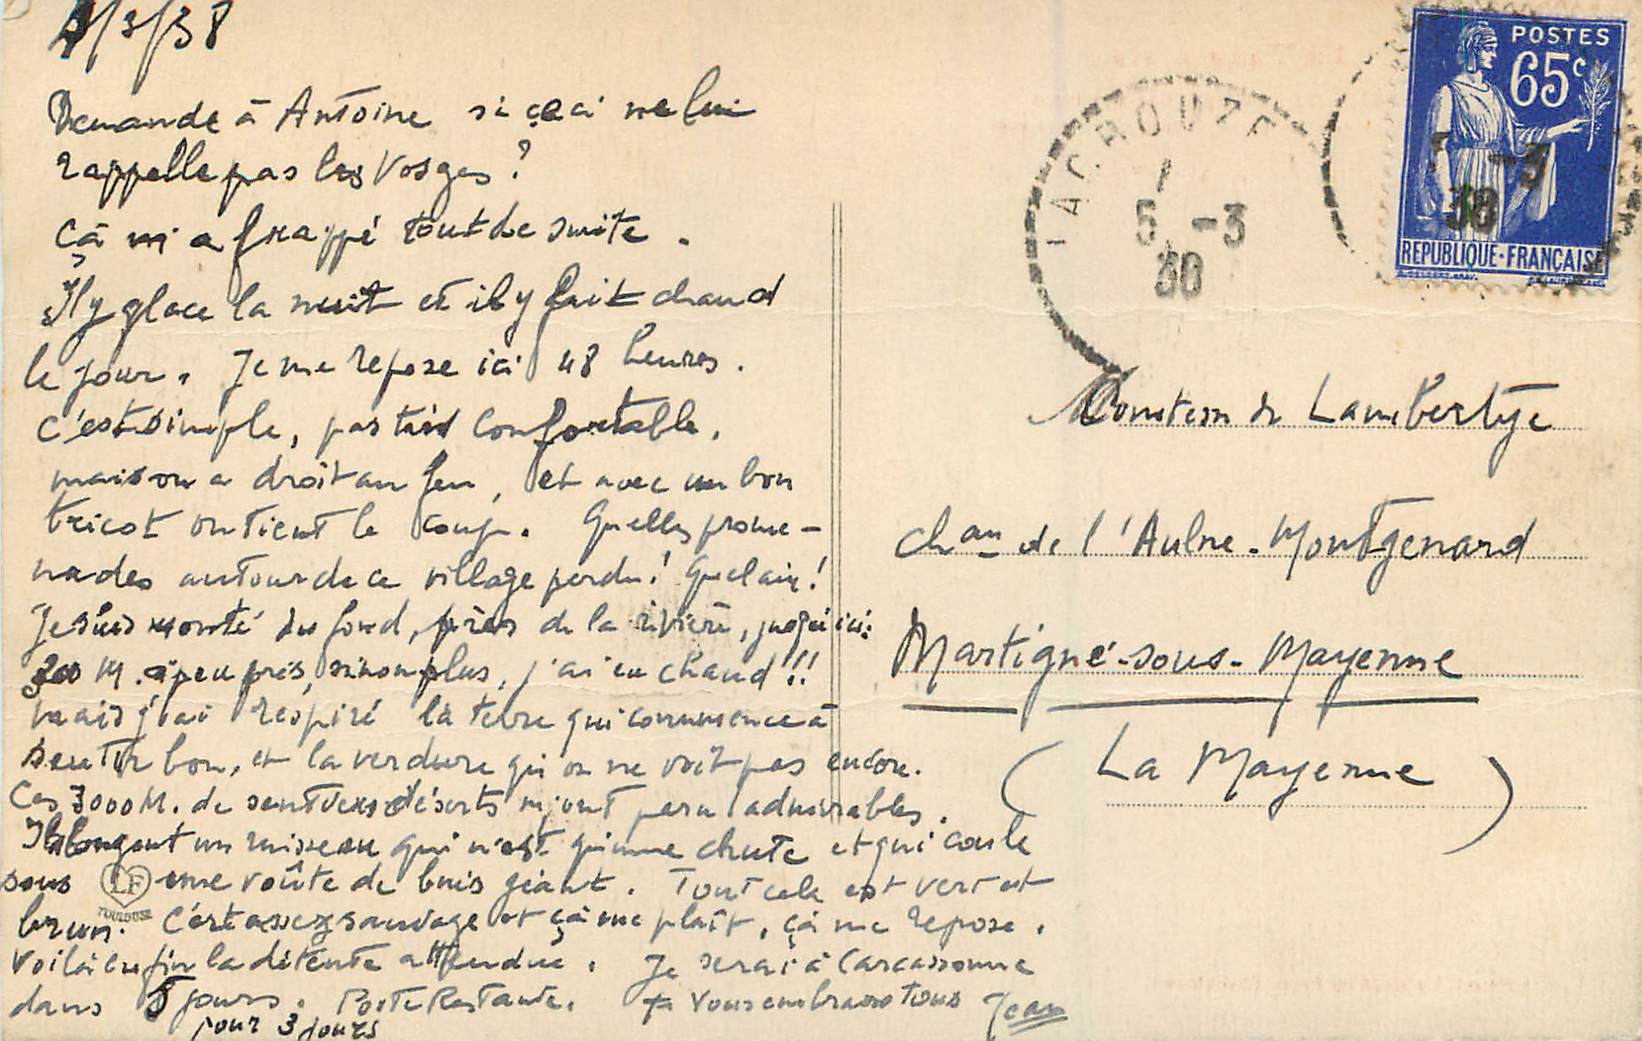 4/3/38
Demande à Antoine si ceci ne lui
rappelle pas les Vosges ?
Çà m'a frappé tout de suite.
Il y glace la nuit et il y fait chaud
le jour. Je me repose ici 48 heures.
C'est simple, pas très confortable,
maison a droit au feu, et avec un bon
tricot on tient le coup. Quelles prome-
nades autour de ce village perdu ! Quel air !
Je suis monté du fond, près de la rivière, jusqu'ici :
300 M. à peu près, sinon plus, j'ai eu chaud !!
mais j'ai respiré la terre qui commence à
sentir bon, et la verdure qu'on ne voit pas encore.
Ces 3000 M. de sentiers déserts m'ont paru admirables.
Ils longent un ruisseau qui n'est qu'une chute et qui coule
sous une voûte de buis géant. Tout cela est vert et
brun. C'est assez sauvage et çà me plaît, çà me repose.
Voilà enfin la détente attendue. Je serai à Carcassonne
dans 5 jours. Poste Restante. Je vous embrasse tous Jean
pour 3 jours
LF
TOULOUSE
POSTES
65c
REPUBLIQUE-FRANÇAISE
-3
38
LACROUZE
1
5 -3
38
Comtesse de Lambertye
Chau de l'Aulne - Montgenard
Martigné-sous-Mayenne
(La Mayenne)